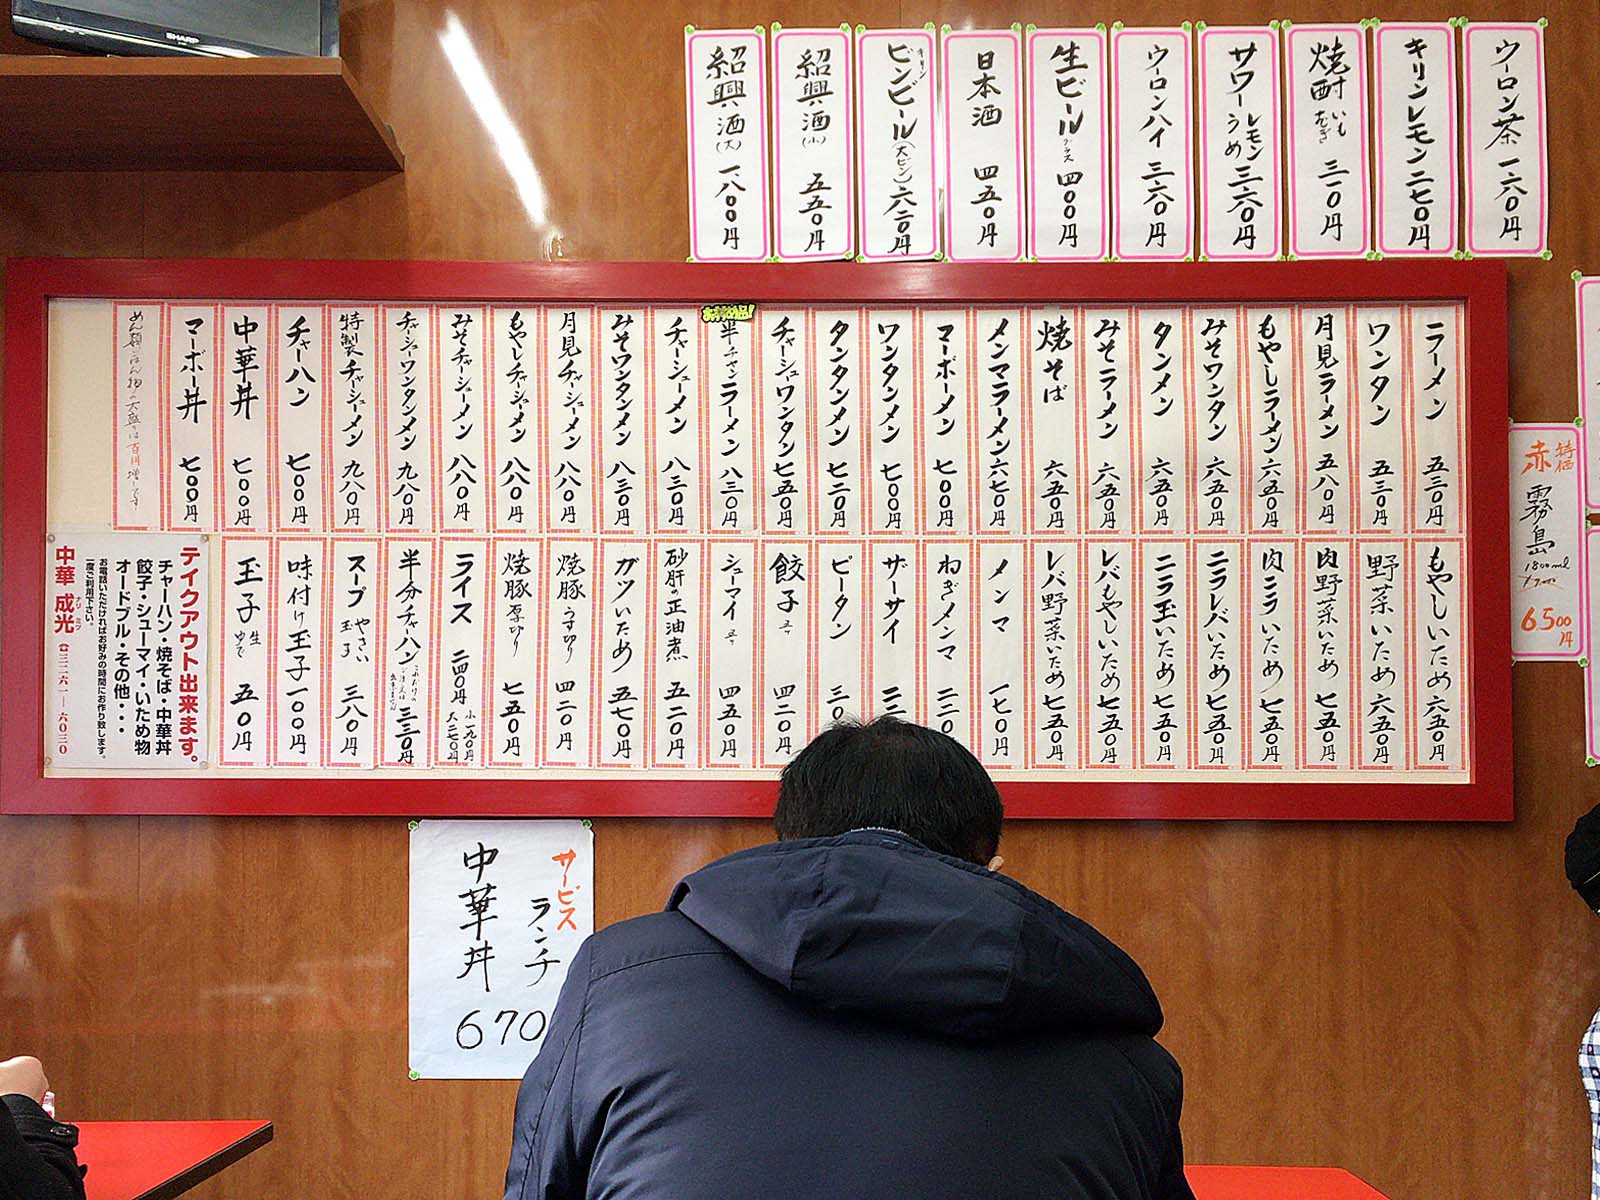 SHARP
ウーロン茶 一六〇円
キリンレモン 二七〇円
焼酎 いも むぎ 三一〇円
サワー レモン うめ 三六〇円
ウーロンハイ 三六〇円
生ビール グラス 四〇〇円
日本酒 四五〇円
キリン ビンビール(大ビン) 六二〇円
紹興酒(小) 五五〇円
紹興酒(大) 一、八〇〇円
ラーメン 五三〇円
ワンタン 五三〇円
月見ラーメン 五八〇円
もやしラーメン 六五〇円
みそワンタン 六五〇円
タンメン 六五〇円
みそラーメン 六五〇円
焼そば 六五〇円
メンマラーメン 六七〇円
マーボーメン 七〇〇円
ワンタンメン 七〇〇円
タンタンメン 七二〇円
チャーシューワンタン 七五〇円
おすすめ品!
半チャンラーメン 八三〇円
チャーシューメン 八三〇円
みそワンタンメン 八三〇円
月見チャーシューメン 八八〇円
もやしチャーシューメン 八八〇円
みそチャーシューメン 八八〇円
チャーシューワンタンメン 九八〇円
特製チャーシューメン 九八〇円
チャーハン 七〇〇円
中華丼 七〇〇円
マーボー丼 七〇〇円
めん類・ごはん物の大盛りは百円増しです
もやしいため 六五〇円
野菜いため 六五〇円
肉野菜いため 七五〇円
肉ニラいため 七五〇円
ニラレバいため 七五〇円
ニラ玉いため 七五〇円
レバもやしいため 七五〇円
レバ野菜いため 七五〇円
メンマ 一七〇円
ねぎメンマ 二二〇円
ザーサイ
ピータン
餃子 五ヶ 四二〇円
シューマイ 五ヶ 四五〇円
砂肝の正油煮 五二〇円
ガツいため 五七〇円
焼豚うす切り 四二〇円
焼豚厚切り 七五〇円
ライス 二四〇円 小 一九〇円 大 二七〇円
半分チャーハン 三三〇円
スープ やさい 玉子 三八〇円
味付け玉子 一〇〇円
玉子 生 ゆで 五〇円
テイクアウト出来ます。
チャーハン・焼そば・中華丼
餃子・シューマイ・いため物
オードブル・その他・・・
お電話いただければお好みの時間にお作り致します。
一度ご利用下さい。
中華 成光 ナリミツ ☎三二六一―六〇三〇
特価
赤霧島
1800ml
6.500円
サービス
ランチ
中華丼
670